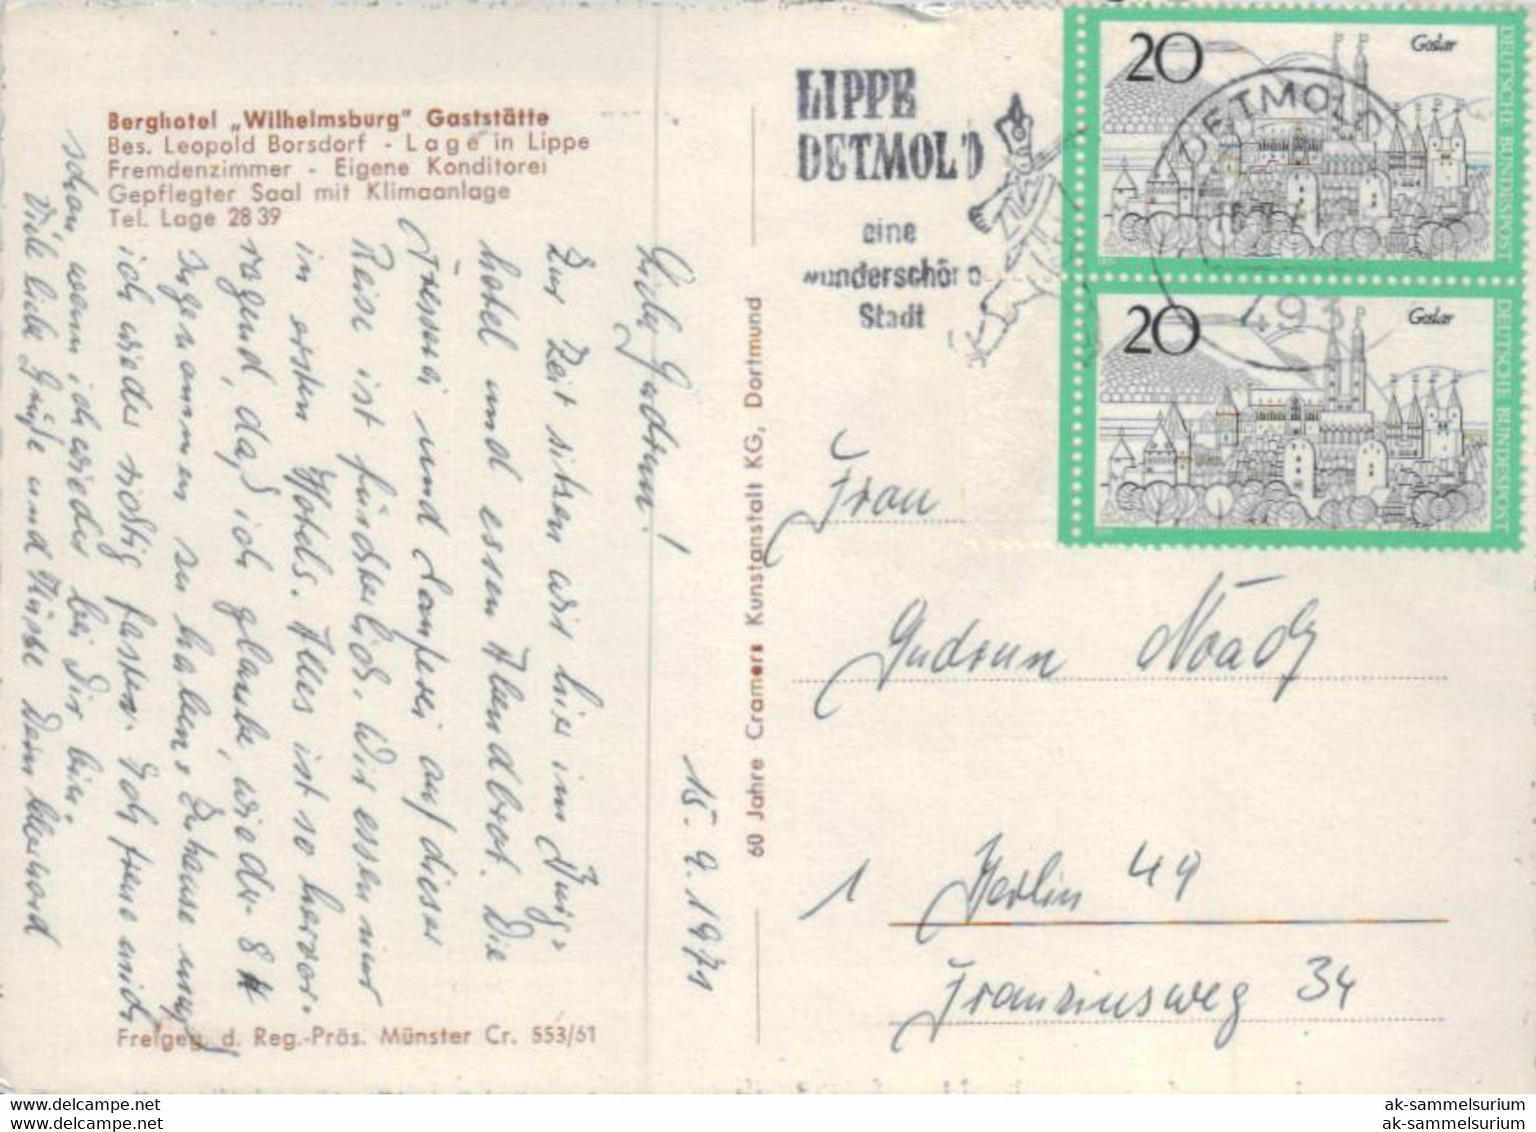 Berghotel „Wilhelmsburg" Gaststätte
Bes. Leopold Borsdorf - Lage in Lippe
Fremdenzimmer - Eigene Konditorei
Gepflegter Saal mit Klimaanlage
Tel. Lage 28 39
15. 9. 1971
Liebe Gudrun!
Zur Zeit sitzen wir hier im
hotel und essen Abendbrot. Die
Fresserei und Sauferei auf dieser
Reise ist fürchterlich. Wir essen nur
in ersten Hotels. Alles ist so hervor-
ragend, daß ich glaube, wieder 8
zugenommen zu haben. Zuhause muß
ich wieder richtig fasten. Ich freue mich
schon wenn ich wieder bei Dir bin.
Viele liebe Grüße und Küsse Dein
Freigeg. d. Reg.-Präs. Münster Cr. 553/61
60 Jahre Cramers Kunstanstalt KG, Dortmund
LIPPE
DETMOLD
eine
wunderschöne
Stadt
DETMOLD
493
20 Goslar
DEUTSCHE BUNDESPOST
20 Goslar
DEUTSCHE BUNDESPOST
Frau
Gudrun
1 Berlin 49
Franziusweg 34
ak-sammelsurium
ak-sammelsurium
ak-sammelsurium
ak-sammelsurium